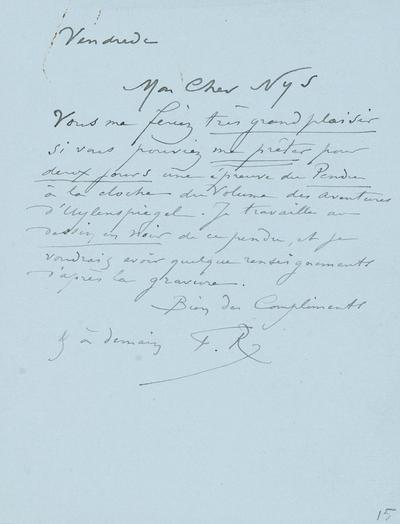 Vendredi
Mon Cher Nys
Vous me feriez très grand plaisir
si vous pouviez me prêter pour
deux jours une épreuve du Pendu
à la cloche du Volume des aventures
d'Uylenspiegel. Je travaille au
dessin en noir de ce pendu, et je
voudrais avoir quelque renseignements
d'après la gravure.
Bien des Compliments
à demain F. R
15